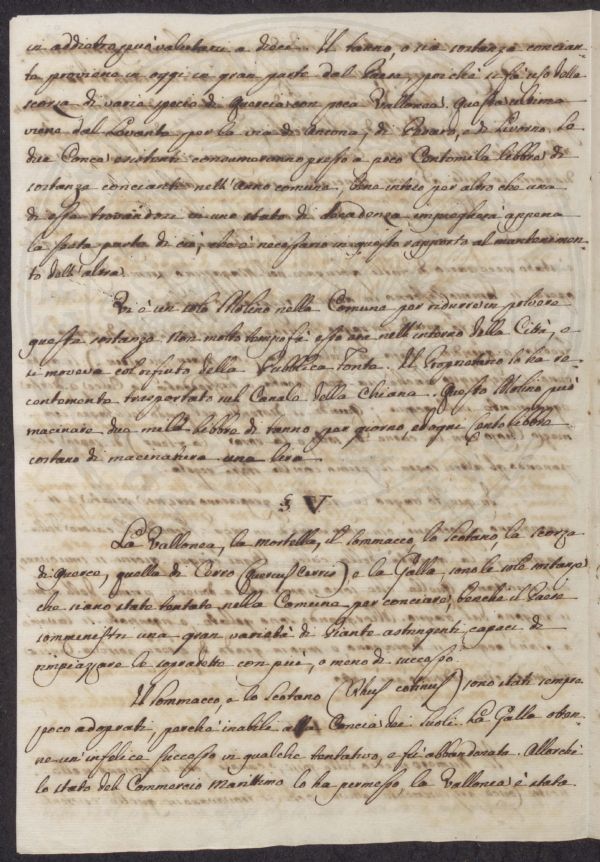 in addietro può valutarsi a dieci. Il tanno, o sia sostanza concian-
te proviene in oggi in gran parte dal Paese, poichè si fà uso della
scorza di varie specie di Quercie con poca Vallonea. Questa ultima
viene dal Levante per la via di Ancona, di Pesaro, e di Livorno. Le
due Conce esistenti consumeranno presso a poco Centomila Libbre di
sostanza conciante nell'anno comune, bene inteso per altro che una
di esse trovandosi in uno stato di decadenza impiegherà appena
la sesta parte di ciò, che è necessario in questo rapporto al mantenimen-
to dell'altra.
Vi è un solo Molino nella Comune per ridurre in polvere
questa sostanza. Non molto tempo fà esso era nell'interno della Città, e
si moveva col rifiuto della Pubblica Fonte. Il Proprietario lo ha re-
centemente trasportato sul Canale della Chiana. Questo Molino può
macinare due mila Libbre di tanno per giorno, ed ogni Cento Libbre
costano di macinatura una lira.
§ V
La Vallonea, la Mortella, il Sommacco, lo Scotano, la scorza
di Querce, quella di Cerro (Quercus Cerris) e la Galla, sono le sole sostanze
che siano state tentate nella Comune per conciare, benchè il Paese
somministri una gran varietà di Piante astringenti capaci di
rimpiazzare le sopradette con più, o meno di successo.
Il Sommacco, e lo Scotano (Rhus cotinus) sono stati sempre
poco adoprati, perchè inabile alla Concia dei suoli. La Galla otten-
ne un infelice successo in qualche tentativo, e fù abbandonata. Allorchè
lo stato del Commercio Marittimo lo ha permesso la Vallonea è stata